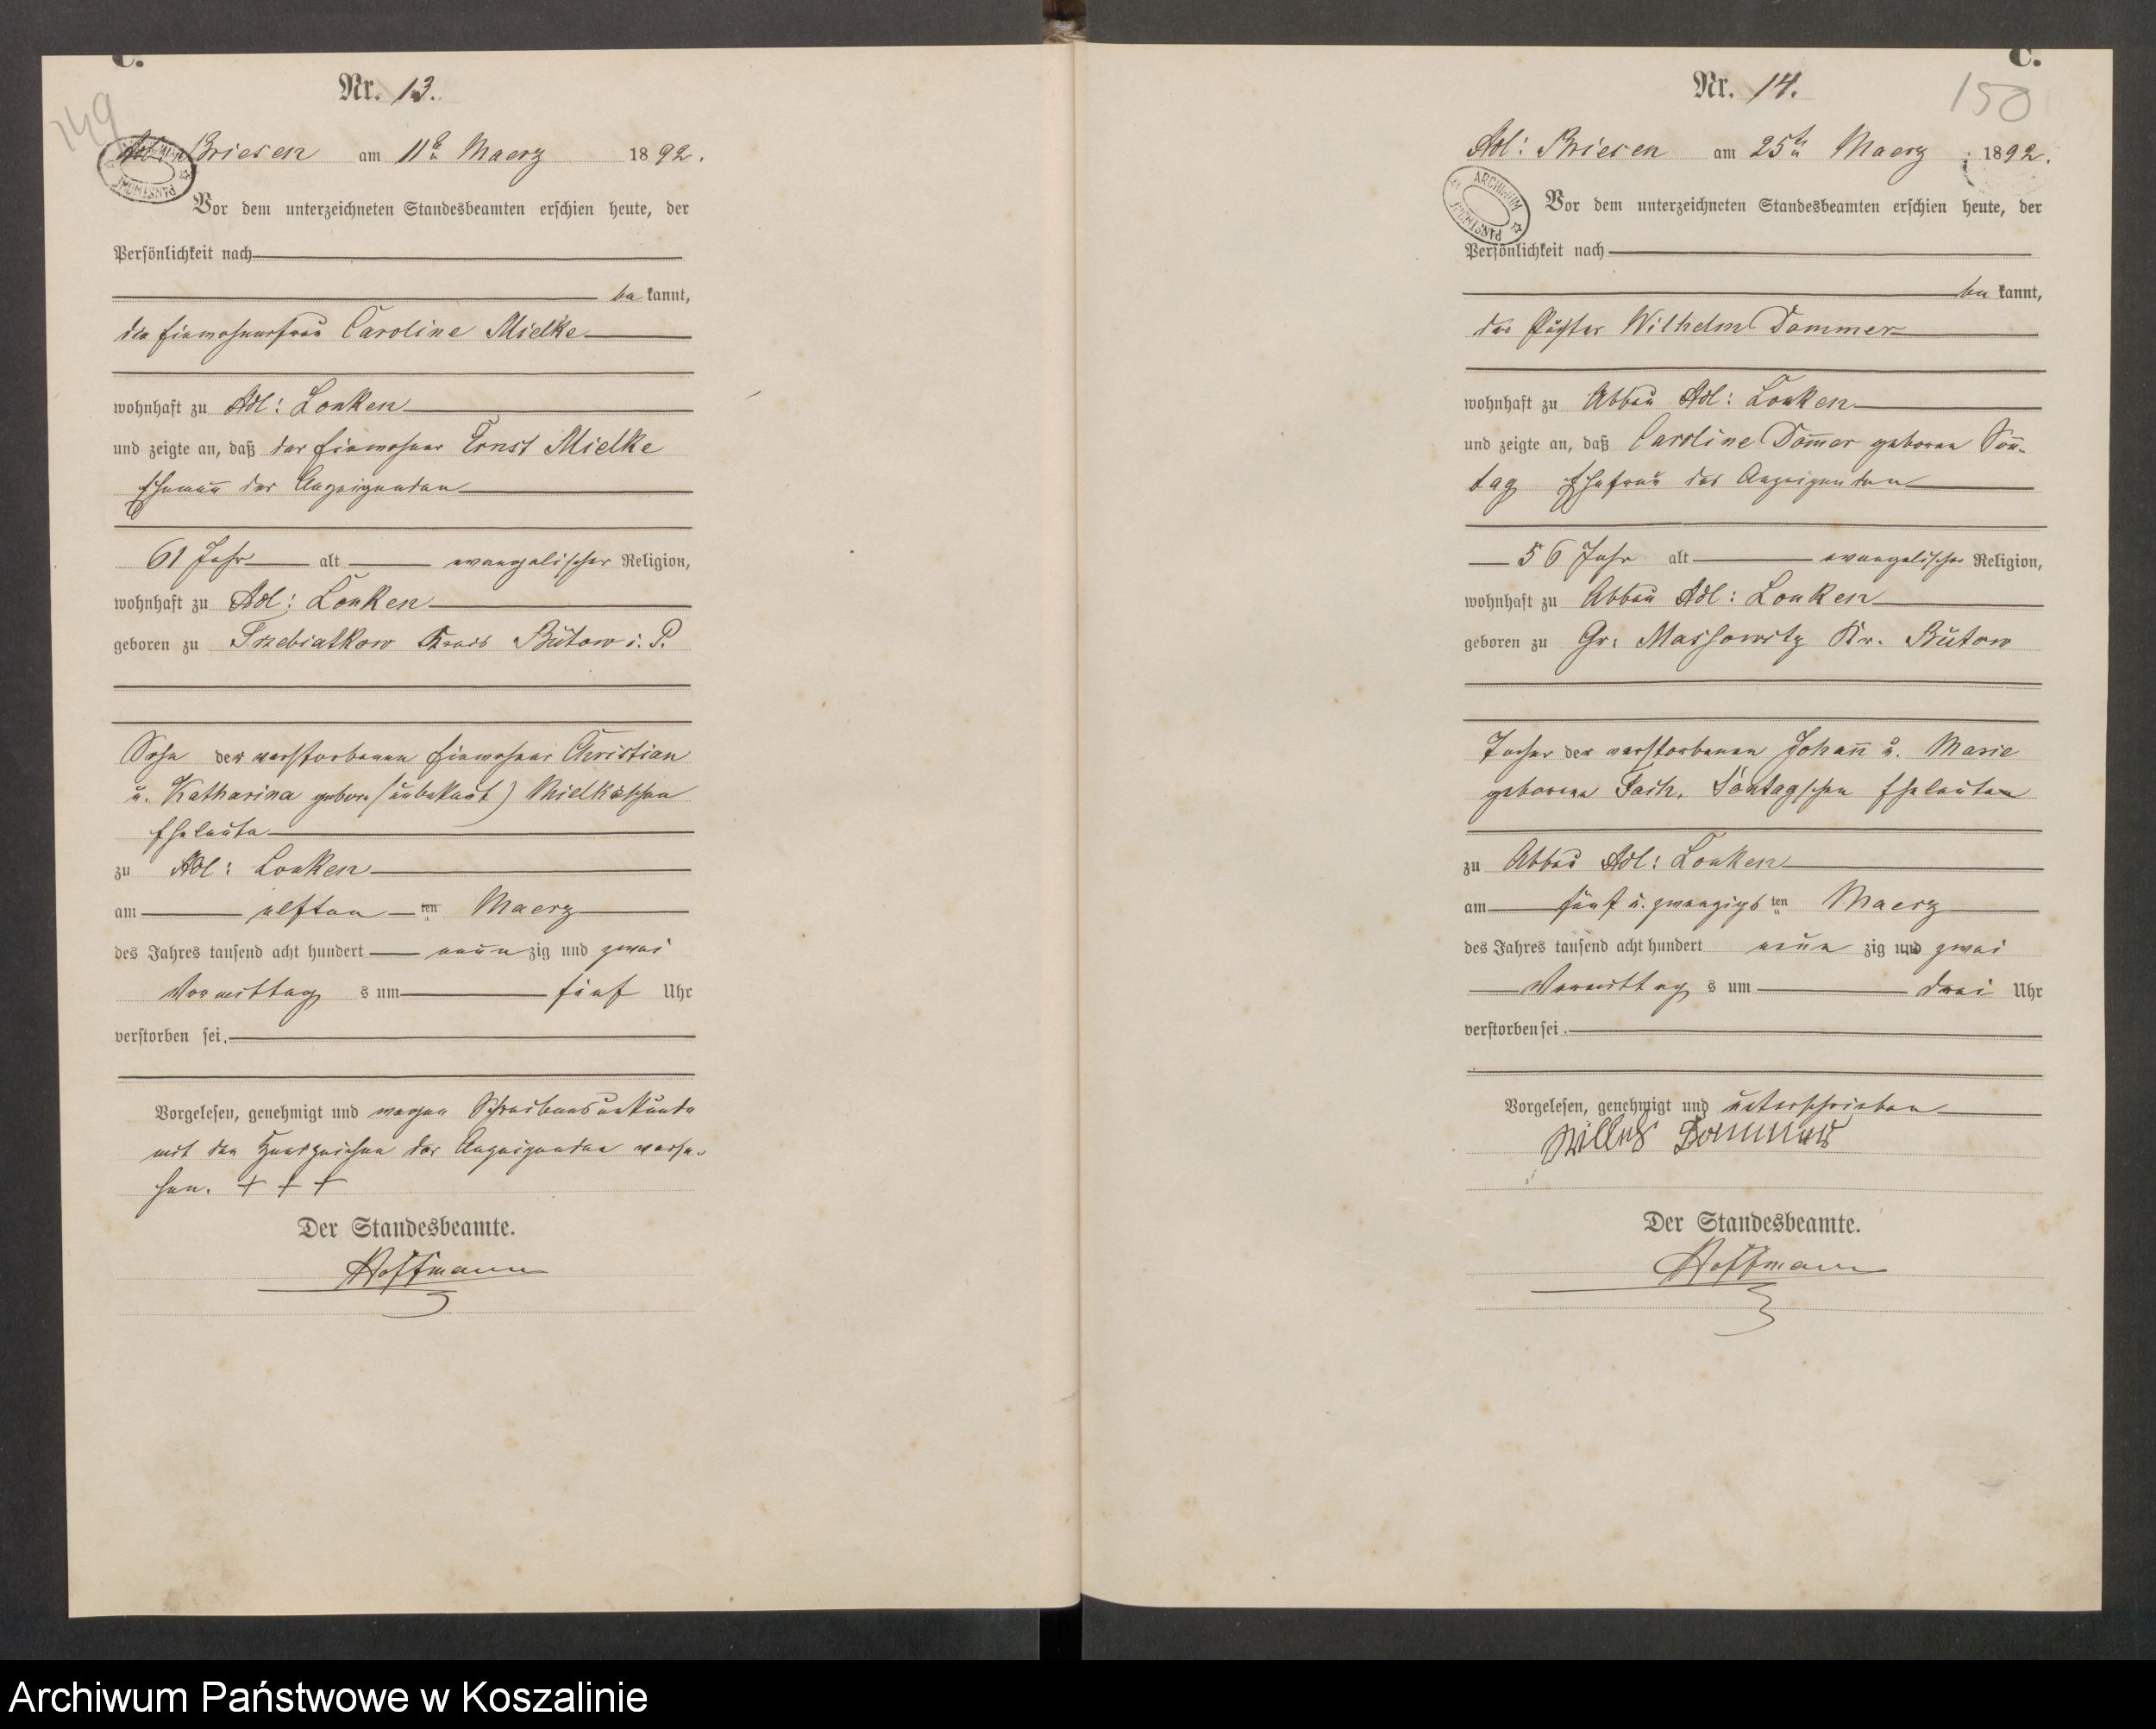 C.
Nr. 13.
149
Adl: Briesen am 11ten Maerz 1892.
Vor dem unterzeichneten Standesbeamten erschien heute, der
Persönlichkeit nach
be kannt,
die Einwohnerfrau Caroline Mielke
wohnhaft zu Adl: Lonken
und zeigte an, daß der Einwohner Ernst Mielke
Ehemann der Anzeigenden
61 Jahr alt evangelischer Religion,
wohnhaft zu Adl: Lonken
geboren zu Trzebiatkow Kreis Bütow i. P.
Sohn der verstorbenen Einwohner Christian
u. Katharina gebore (unbekant) Mielkeschen
Eheleute
zu Adl: Lonken
am elften ten Maerz
des Jahres tausend acht hundert neun zig und zwei
Vormittag s um fünf Uhr
verstorben sei.
Vorgelesen, genehmigt und wegen Schreibensunkunde
mit den Handzeichen der Anzeigenden verse-
hen. + + +
Der Standesbeamte.
Hoffmann
C.
Nr. 14.
150
Adl: Briesen am 25ten Maerz 1892.
ARCHIWUM PAŃSTWOWE
Vor dem unterzeichneten Standesbeamten erschien heute, der
Persönlichkeit nach
be kannt,
der Pächter Wilhelm Dommer
wohnhaft zu Abbau Adl: Lonken
und zeigte an, daß Caroline Dom̄er geborene Son̄-
tag Ehefrau des Anzeigenden
56 Jahr alt evangelischer Religion,
wohnhaft zu Abbau Adl: Lonken
geboren zu Gr: Massowitz Kr. Bütow
Tochter der verstorbenen Johan̄ u. Marie
geborene Sontagschen Eheleuten
zu Abbau Adl: Lonken
am fünf u. zwanzigs ten Maerz
des Jahres tausend acht hundert neun zig und zwei
Vormittag s um drei Uhr
verstorben sei.
Vorgelesen, genehmigt und unterschrieben
Dommer
Der Standesbeamte.
Hoffmann
Archiwum Państwowe w Koszalinie